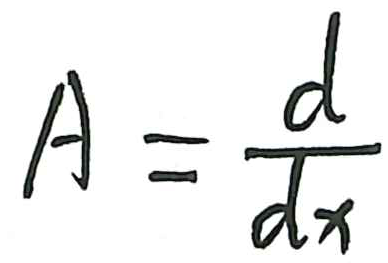 A = d/dx